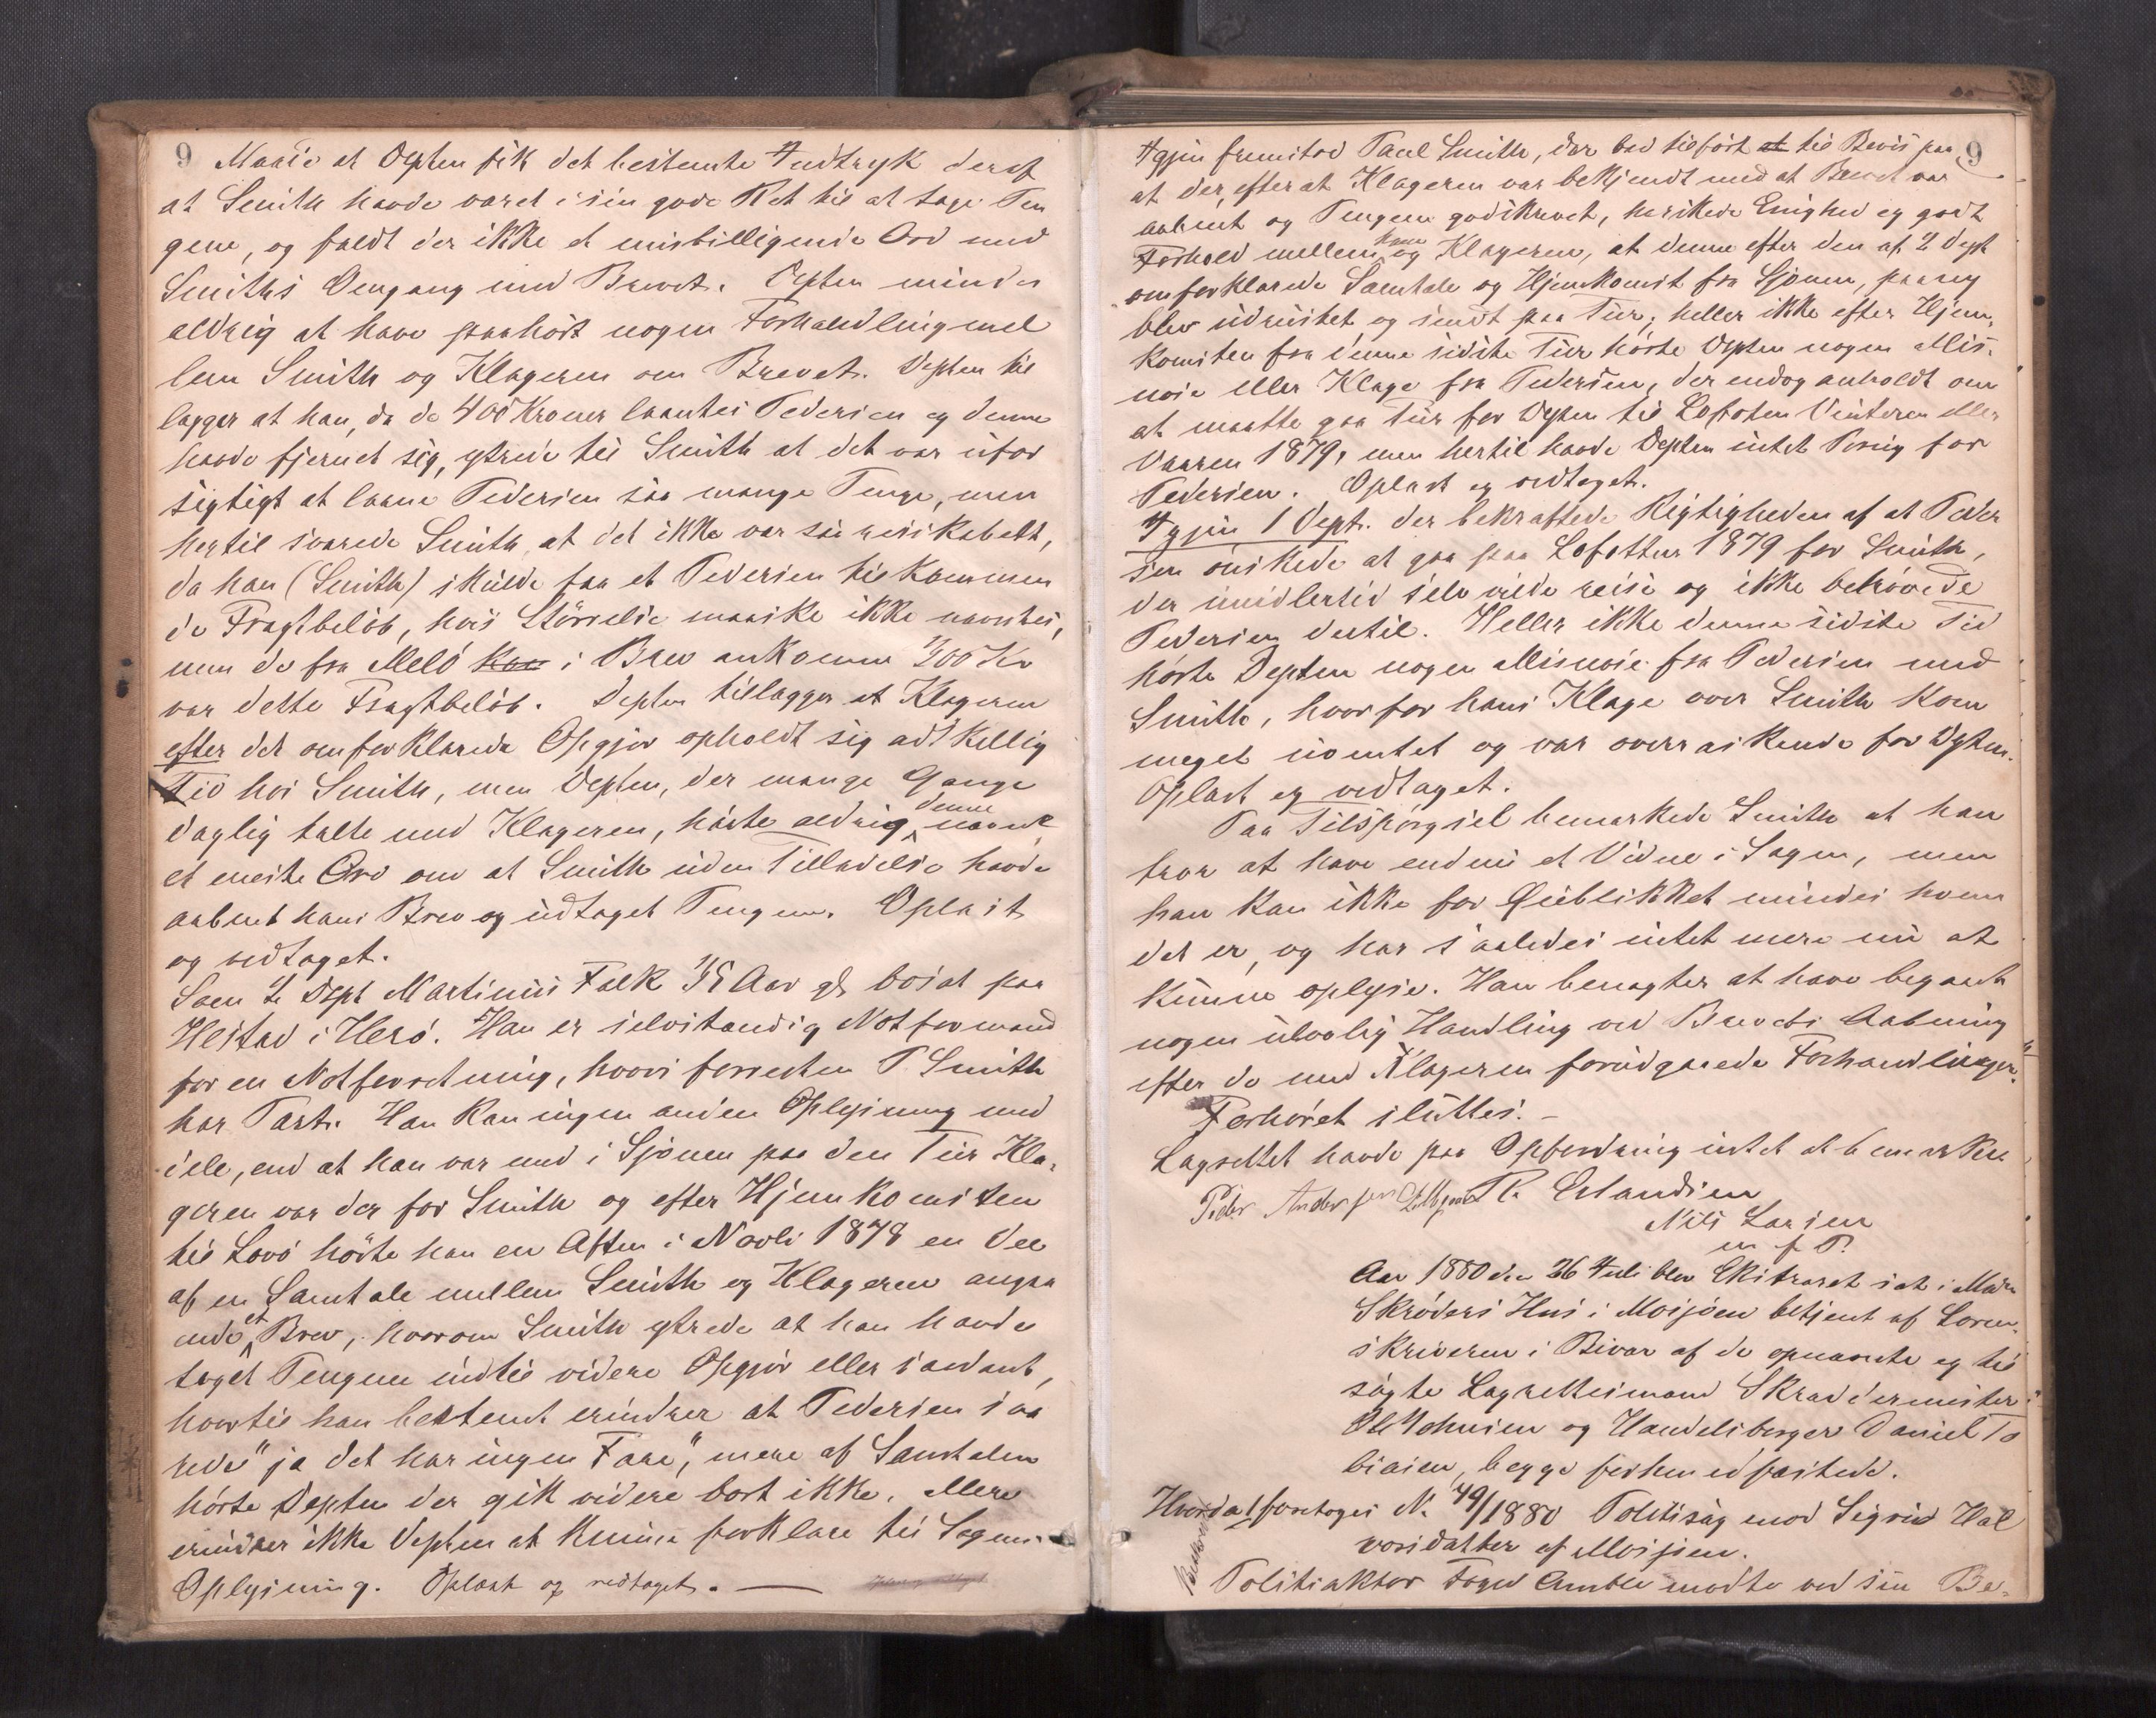 9 Maade at Depten fik det bestemte Indtryk deraf
at Smith havde været i sin gode Ret til at tage Pen
gene, og faldt der ikke et misbilligende Ord med
Smiths Omgang med Brevet. Depten mindes
aldrig at have paahört nogen Forhandling mel
lem Smith og Klageren om Brevet. Depten til
lægger at han, da de 400 Kroner laantes Pedersen og denne
havde fjernet sig, ytrede til Smith at det var ufor
sigtigt at laane Pedersen saa mange Penge, men
hertil svarede Smith, at det ikke var saa resikabelt,
da han (Smith) skulde faa et Pedersen tilkommen
de Fragtbelöb, hvis Störrelse maaske ikke nævntes,
men de fra Melö i Brev ankomne 200 Kr
var dette Fragtbelöb. Depten tillægger at Klageren
efter det omforklarede Opgjör opholdt sig adskillig
Tid hos Smith, men Depten, der mange Gange
daglig talte med Klageren, hörte aldrig denne nævne
et eneste Ord om at Smith uden Tilladelse havde
aabnet hans Brev og udtaget Pengene. Oplæst
og vedtaget.
Som 2 Dept Martinus Falk 35 Aar gl bosat paa
Hestad i Herö. Han er selvstændig Notformand
for en Notforretning, hvori forresten P. Smith
har Part. Han kan ingen anden Oplysning med
dele, end at han var med i Sjöen paa den Tur Kla-
geren var der for Smith og efter Hjemkomsten
til Lovö hörte han en Aften i Novbr 1878 en Del
af en Samtale mellem Smith og Klageren angaa
ende et Brev, hvorom Smith ytrede at han havde
taget Pengene indtil videre Opgjör eller saadant,
hvortil han bestemt erindrer at Pedersen sva
rede "ja det har ingen Fare", mere af Samtalen
hörte Depten der gik videre bort ikke. Mere
erindrer ikke Depten at kunne forklare til Sagens
Oplysning. Oplæst og vedtaget. —
9
Igjen fremstod Paul Smith, der bad tilfört at til Bevis paa
at der, efter at Klageren var bekjendt med at Brevet var
aabnet og Pengene godskrevet, herskede Enighed og godt
Forhold mellem ham og Klageren, at denne efter den af 2 Dept
omforklarede Samtale og Hjemkomst fra Sjöen, paany
blev udrustet og sendt paa Tur; heller ikke efter Hjem-
komsten fra denne sidste Tur hörte Depten nogen Mis-
nöie eller Klage fra Pedersen, der endog anholdt om
at maatte gaa Tur for Depten til Lofoten Vinteren eller
Vaaren 1879, men hertil havde Depten intet Brug for
Pedersen. Oplæst og vedtaget.
Igjen 1 Dept. der bekræftede Rigtigheden af at Peder
sen önskede at gaa paa Lofottur 1879 for Smith,
der imidlertid selv vilde reise og ikke behövede
Pedersen dertil. Heller ikke denne sidste Tid
hörte Depten nogen Misnöie fra Pedersen med
Smith, hvorfor hans Klage over Smith kom
meget uventet og var overraskende for Depten.
Oplæst og vedtaget.
Paa Tilspörgsel bemærkede Smith at han
tror at have endnu et Vidne i Sagen, men
han kan ikke for Öieblikket mindes hvem
det er, og har saaledes intet mere nu at
kunne oplyse. Han benægter at have begaaet
nogen ulovlig Handling ved Brevets Aabning
efter de med Klageren forudgaaede Forhandlinger.
Forhöret sluttes. —
Lagrettet havde paa Opfordring intet at bemærke
Peder Andersen P. Erlandsen
Nils Larsen
m f P.
Aar 1880 den 26 Juli blev Extraret sat i Mdm
Skröders Hus i Mosjöen betjent af Soren-
skriveren i Bivær af de opnævnte og til
sagte Lagrettesmænd Skræddermester
Ole Johnsen og Handelsborger Daniel To
biasen, begge forhen edfæstede.
Hvorda foretoges N. 49/1880 Politisag mod Sigrid Hal
vorsdatter af Mosjöen.
Politiaktor Foged Amble mödte ved sin Be-